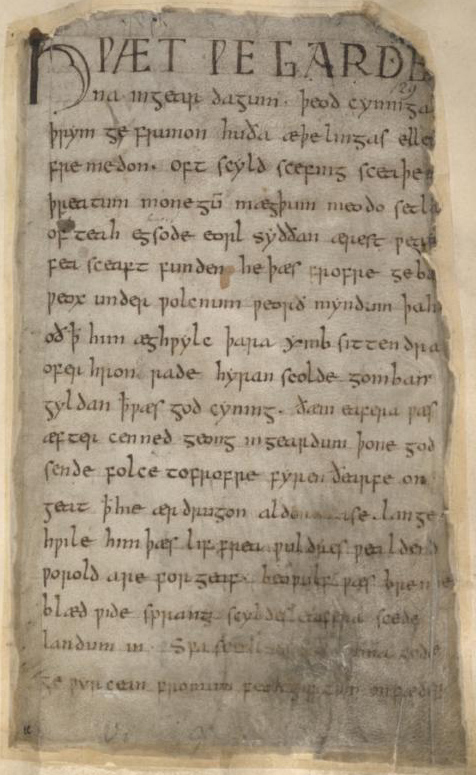 HǷÆT ǷE GARDE
129
na ingear dagum · þeod cyninga
þrym ge frunon huða æþelingas elle
fre medon. oft scyld scefing sceaþe
þreatum monegū mægþum meodo setla
of teah egsode eorl syððan ærest ƿearð
fea sceaft funden he þæs frofre geba
ƿeox under ƿolcnum ƿeorð myndum þah
oð ꝥ him æghƿylc þara ymb sittendra
ofer hron rade hyran scolde gomban
gyldan ꝥ ƿæs god cyning. ðæm eafera ƿæs
æfter cenned geong ingeardum þone god
sende folce tofrofre fyren ðearfe on
geat ꝥ hie ær drugon aldor ase. lange
hƿile him þæs lif frea ƿuldres ƿealdend
ƿorold are for geaf. beoƿulf ƿæs breme
blæd ƿide sprang scyldes eafera scede
landum in. Sƿa gode
ge ƿyrcean fromum feoh giftum